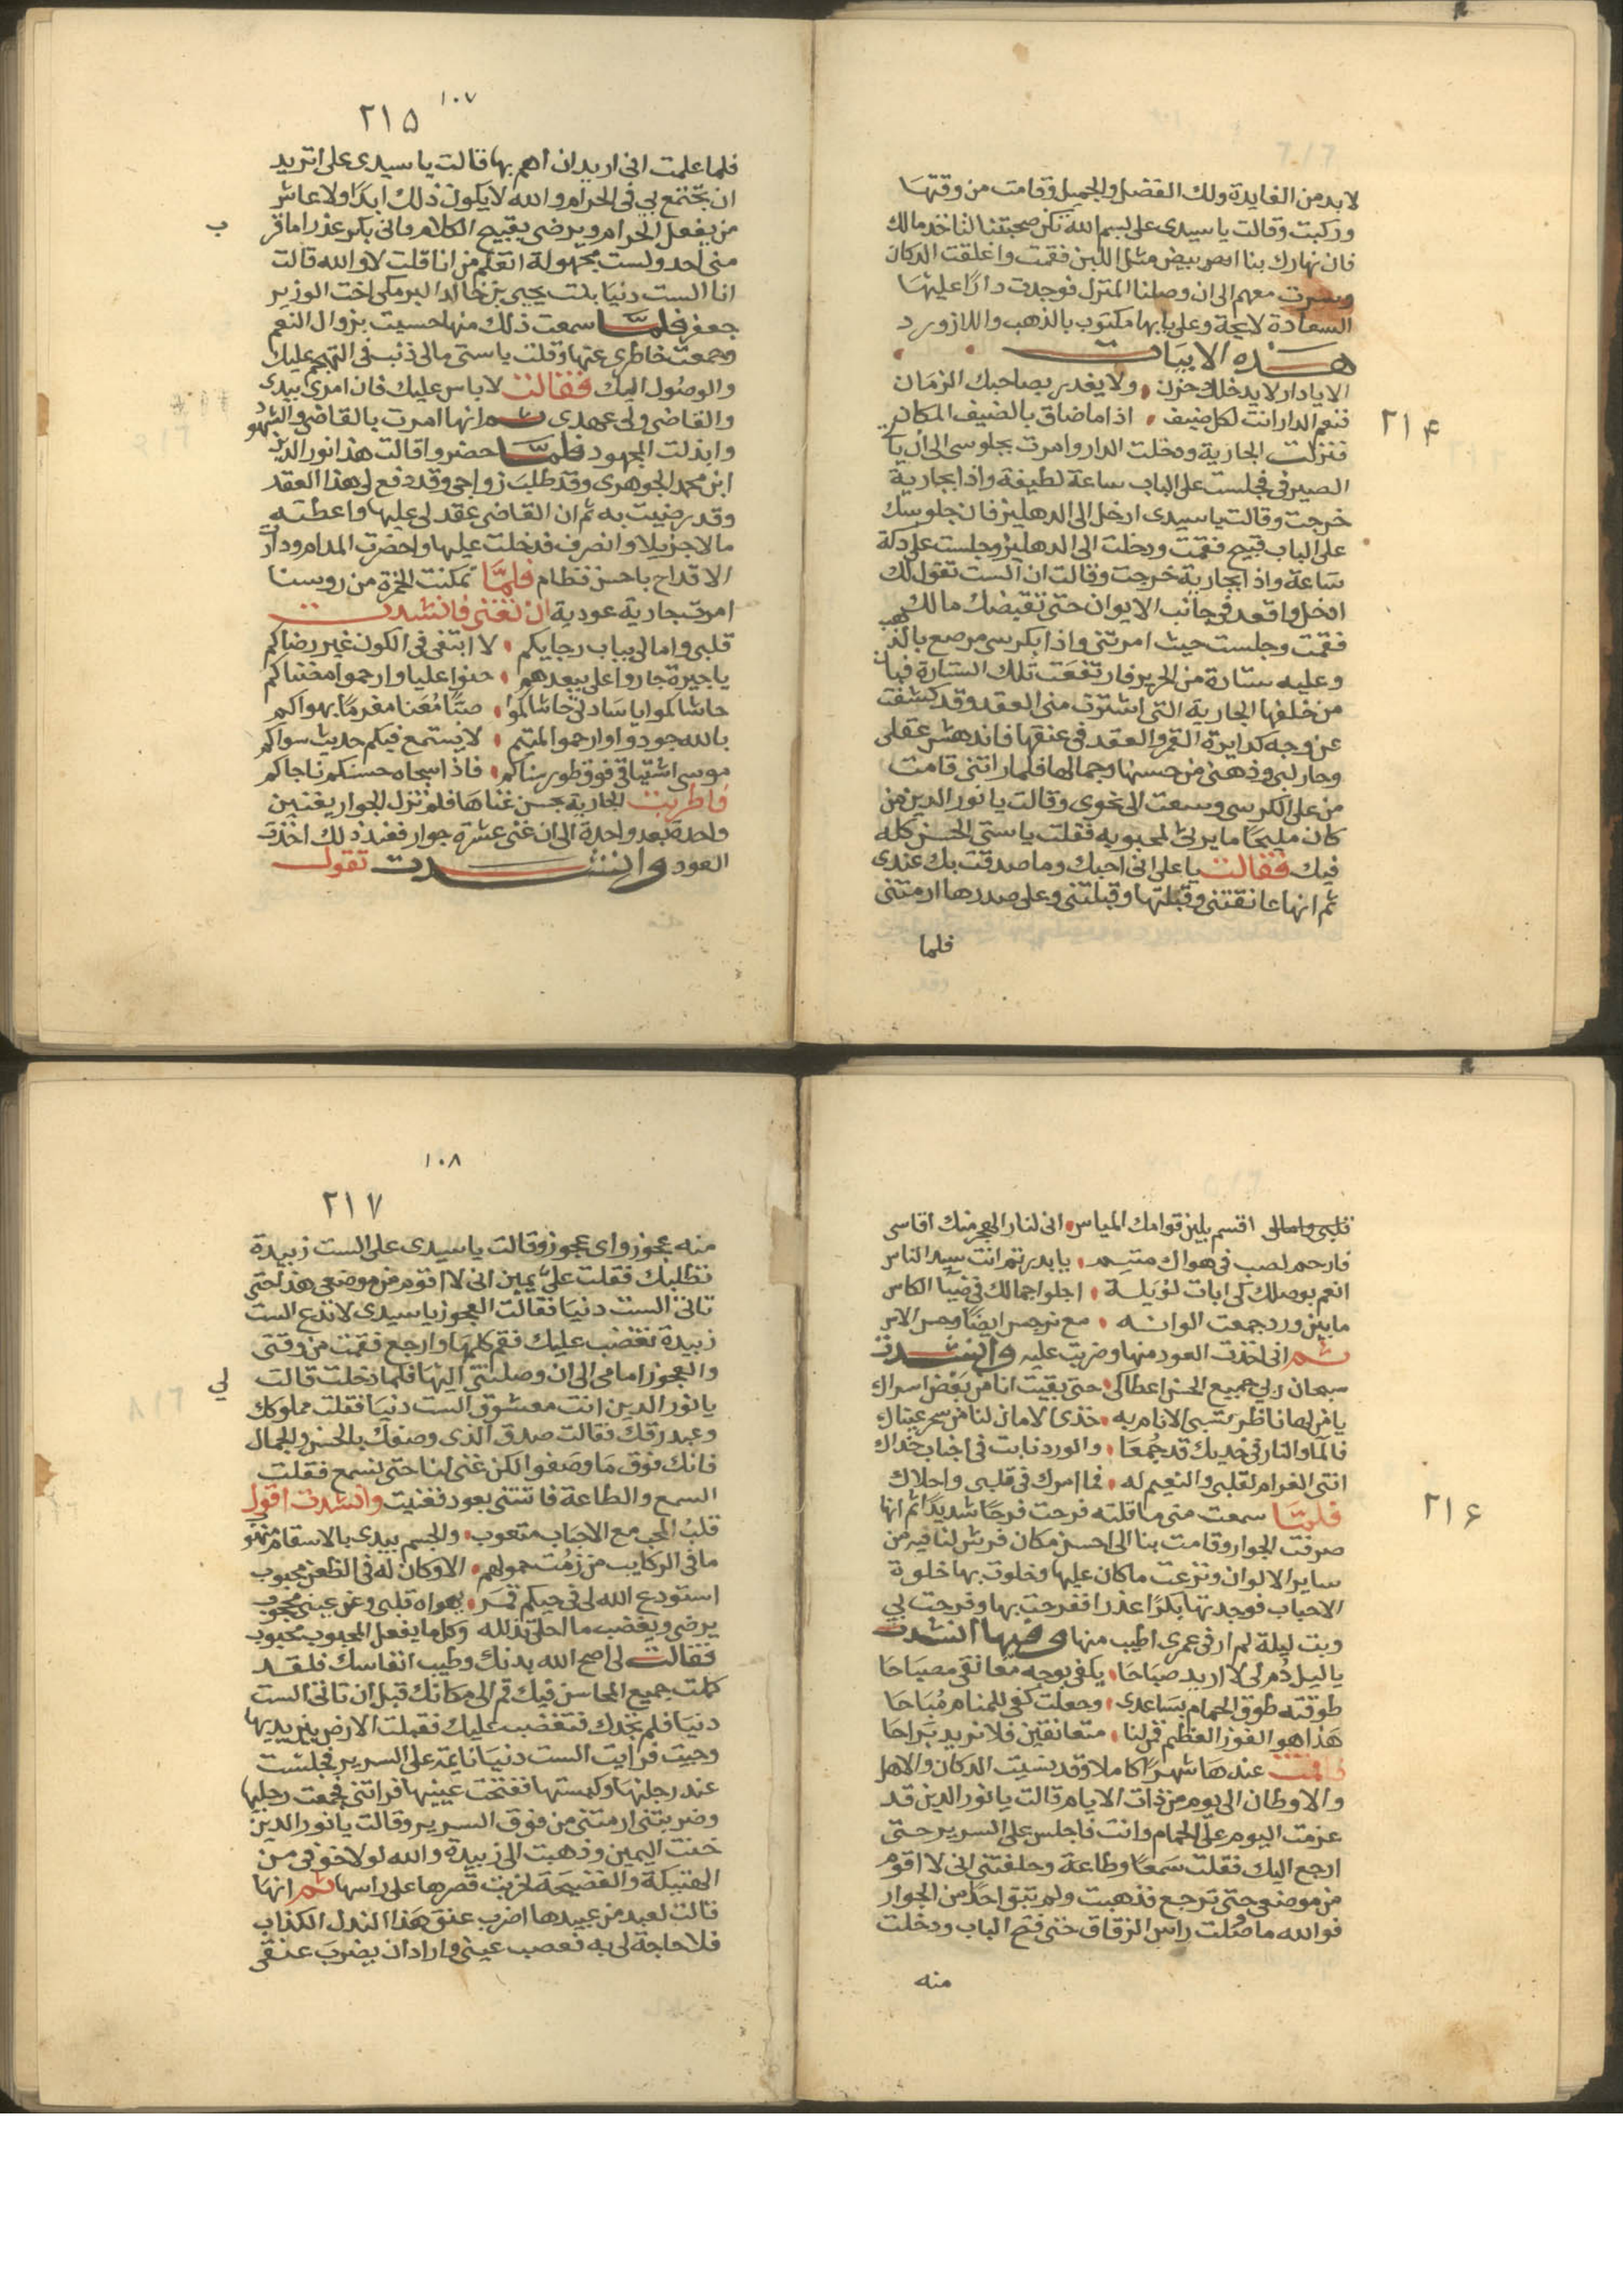 ٢١٤
لا بد من الفايدة ولك الفضل والجميل وقامت من وقتها
وركبت وقالت يا سيدى على بسم الله تكن صحبتنا لتاخذ مالك
فان نهارك بنا ابيض مثل اللبن فقمت واغلقت الدكان
وسرت معهم الى ان وصلنا المنزل فوجدت دارًا عليها
السعادة لايحة وعلى بابها مكتوب بالذهب واللازورد
هذه الابيات
الا يا دار لا يدخلك حزن ولا يغدر بصاحبك الزمان
فنعم الدار انت لكل ضيف اذا ما ضاق بالضيف المكان
فنزلت الجارية ودخلت الدار وامرت بجلوسى الى ان يا
الصيرفى فجلست على الباب ساعة لطيفة واذا بجارية
خرجت وقالت يا سيدى ادخل الى الدهليز فان جلوسك
على الباب قبيح فقمت ودخلت الى الدهليز وجلست على دكة
ساعة واذا بجارية خرجت وقالت ان الست تقول لك
ادخل واقعد فى جانب الايوان حتى تقبضك مالك
فقمت وجلست حيث امرتنى واذا بكرسى مرصع بالذهب
وعليه ستارة من الحرير فارتفعت تلك الستارة فبان
من خلفها الجارية التى اشترت منى العقد وقد كشفت
عن وجه كدايرة القمر والعقد فى عنقها فاندهش عقلى
وحار لبى وذهنى من حسنها وجمالها فلما راتنى قامت
من على الكرسى وسعت الى نحوى وقالت يا نور الدين من
كان مليحًا ما يرثى لمحبوبه فقلت يا ستى الحسن كله
فيك فقالت يا على انى احبك وما صدقت بك عندى
ثم انها عانقتنى وقبلتها وقبلتنى وعلى صدرها ارمتنى
فلما
١٠٧
٢١٥
فلما علمت انى اريد ان اهم بها قالت يا سيدى على اتريد
ان تجتمع بى فى الحرام والله لا يكون ذلك ابدًا ولا عاش
من يفعل الحرام ويرضى بقبيح الكلام فانى بكر عذرا ما قر
ب
منى احد ولست مجهولة اتعلم من انا قلت لا والله قالت
انا الست دنيا بنت يحيى بن خالد البرمكى اخت الوزير
جعفر فلمّا سمعت ذلك منها حسيت بزوال النعم
وجمعت خاطرى عنها وقلت يا ستى مالى ذنب فى التهجم عليك
والوصول اليك فقالت لا باس عليك فان امرى بيدى
والقاضى ولى عهدى ثم انها امرت بالقاضى والشهود
وابذلت المجهود فلمّا حضروا قالت هذا نور الدين
ابن محمد الجوهرى وقد طلب زواجى وقد دفع لى هذا العقد
وقد رضيت به ثم ان القاضى عقد لى عليها واعطته
مالا جزيلا وانصرف فدخلت عليها واحضرت المدام ودارت
الاقداح باحسن نظام فلمّا تمكنت الخمرة من روسنا
امرت جارية عودية ان تغنى فانشدت
قلبى وامالى بباب رجايكم لا ابتغى فى الكون غير رضاكم
يا جيرة جاروا على ببعدهم حنوا عليا وارحموا مضناكم
حاشاكموا يا سادتى حاشاكموا صبًّا مُعَنا مغرمًا بهواكم
بالله جودوا وارحموا لمتيم لا يستمع فيكم حديث سواكم
موسى اشتياقى فوق طور سناكم فاذا سجاه حسنكم ناجاكم
فاطربت الجارية بحسن غناها فلم تزل الجوار يغنين
واحدة بعد واحدة الى ان غنى عشرة جوار فعند ذلك اخذت
العود وانشدت تقول
٢١٦
قلبى وامالى اقسم بلين قوامك المياس انى لنار الهجر منك اقاسى
فارحم لصب فى هواك متيم يا بدر تم انت سيد الناس
انعم بوصلك كى ابات لؤيلة اجلوا جمالك فى ضيا الكاس
ما بين ورد جمعت الوانه مع نرجس ايضًا وحس الاس
ثم انى اخذت العود منها وضربت عليه وانشدت
سبحان ربى جميع الحسن اعطاكى حتى بقيت انا من بعض اسراك
يا من لها ناظر تسبى الانام به خذى الامان لنا من سحر عيناك
فالما والنار فى خديك قد جُمعَا والورد نابت فى اجناب خداك
انتى الغرام لقلبى والنعيم له فما امرك فى قلبى واحلاك
فلمّا سمعت منى ما قلته فرحت فرحًا شديدًا ثم انها
صرفت الجوار وقامت بنا الى احسن مكان فرش لنا فيه من
ساير الالوان ونزعت ما كان عليها وخلوت بها خلوة
الاحباب فوجدتها بكرًا عذرا ففرحت بها وفرحت بى
وبت ليلة لم ار فى عمرى اطيب منها وفيها انشدت
يا ليل دُم لى لا اريد صباحَا يكفى بوجه معانقى مصباحَا
طوقته طوق الحمام بساعدى وجعلت كفى للمنام مُباحَا
هَذا هو الفوز العظيم فمر لنا متعانقين فلا نريد بَراحَا
فاقمت عندها شهرًا كاملا وقد نسيت الدكان والاهل
والاوطان الى يوم من ذات الايام قالت يا نور الدين قد
عزمت اليوم على الحمام وانت فاجلس على السرير حتى
ارجع اليك فقلت سمعًا وطاعة وحلفتنى انى لا اقوم
من موضعى حتى ترجع فذهبت ولم تبق احدًا من الجوار
فوالله ما وصلت راس الزقاق حتى فتح الباب ودخلت
منه
١٠٨
٢١٧
منه عجوز واى عجوز وقالت يا سيدى على الست زبيدة
تطلبك فقلت علىّ يمين انى لا اقوم من موضعى هذا حتى
تاتى الست دنيا فقالت العجوز يا سيدى لا تدع الست
زبيدة تغضب عليك فقم كلمها وارجع فقمت من وقتى
والعجوز امامى الى ان وصلتنى اليها فلما دخلت قالت
لى
يا نور الدين انت معشوق الست دنيا فقلت مملوكك
وعبد رقك فقالت صدق الذى وصفك بالحسن والجمال
فانك فوق ما وصفوا لكن غنى لنا حتى نسمع فقلت
السمع والطاعة فاتتنى بعود فغنيت وانشدت اقول
قلبُ المحب مع الاحباب متعوب والجسم بيدى بالاسقام منهوب
ما فى الركايب من زُمت حمولهم الا وكان له فى الظعن محبوب
استودع الله لى فى حيكم قمَر يهواه قلبى وعن عينى محجوب
يرضى ويغضب ما احلى تذلله وكل ما يفعل المحبوب محبوب
فقالت لى اصح الله بدنك وطيب انفاسك فلقد
كملت جميع المحاسن فيك قم الى مكانك قبل ان تاتى الست
دنيا فلم تجدك فتغضب عليك فقبلت الارض بين يديها
وجيت فرايت الست دنيا نايمة على السرير فجلست
عند رجليها وكبستها ففتحت عينيها فراتنى فجمعت رجليها
وضربتنى ارمتنى من فوق السرير وقالت يا نور الدين
خنت اليمين وذهبت الى زبيدة والله لولا خوفى من
الهتيكة والفضيحة لخربت قصرها على راسها ثم انها
قالت لعبد من عبيدها اضرب عنق هذا الندل الكذاب
فلا حاجة لى به فعصب عينى واراد ان يضرب عنقى